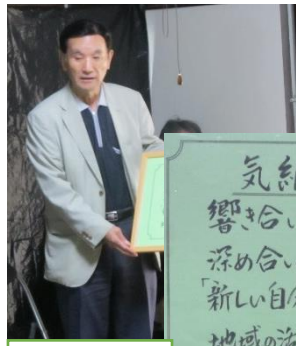 気
響き合い
深め合い
「新しい自
地域の